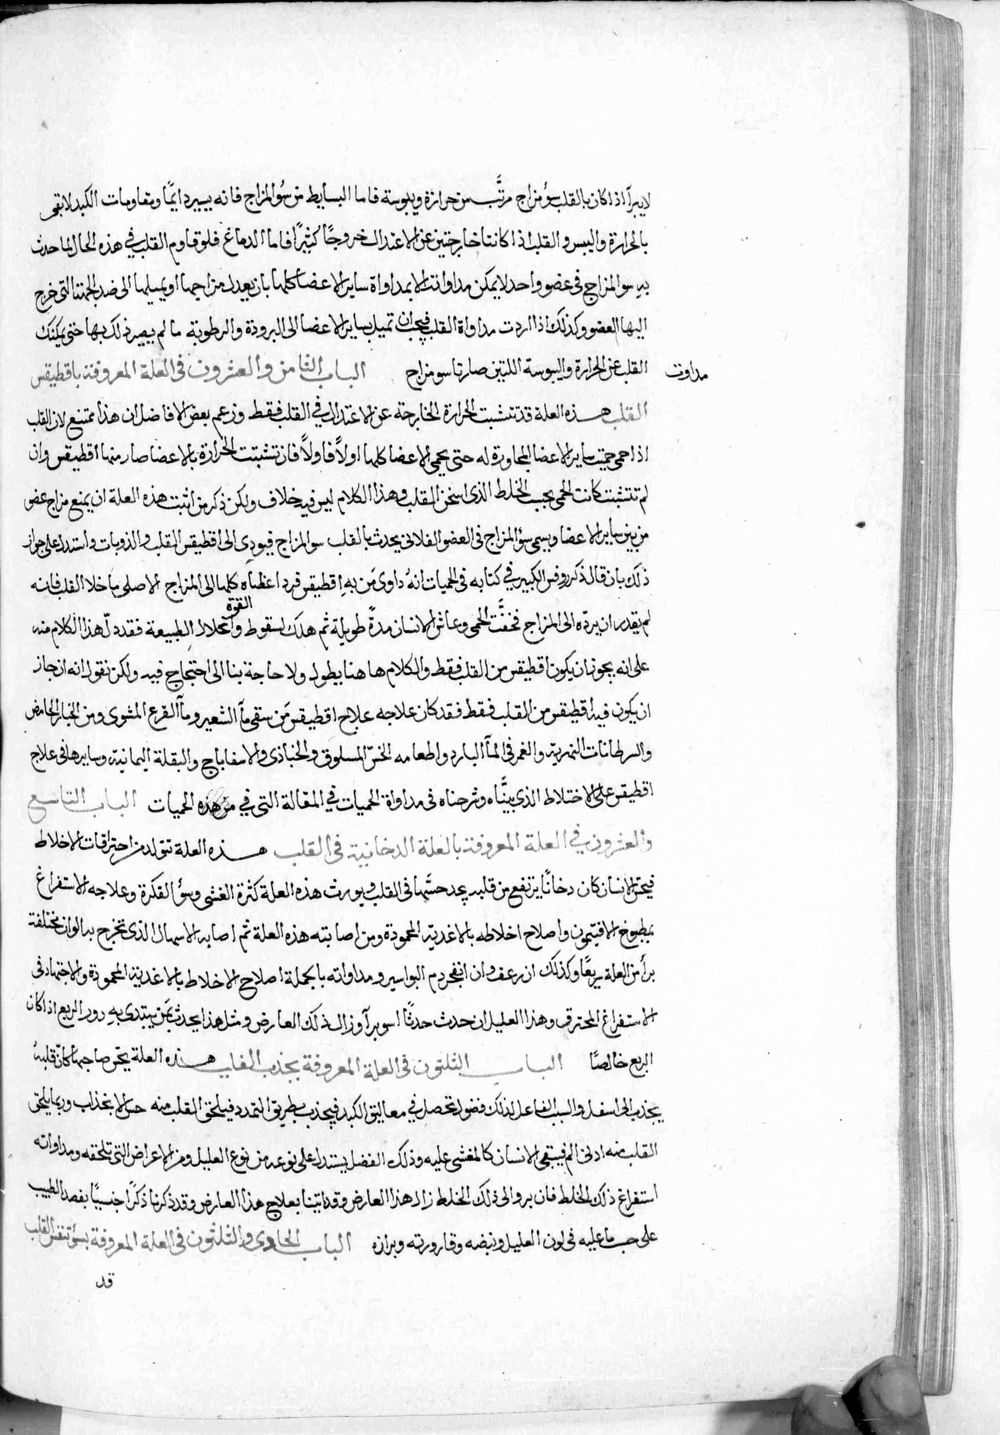 لا يبرأ اذا كان بالقلب سؤ مزاج مرتَّب من حرارة ويبوسة فاما البسايط من سُؤ المزاج فانه يسير دايمًا ومقاومات الكبد لا تفى
بالحرارة واليبس والقلب اذا كانتا خارجتين عن الاعتدال خروجًا كثيرًا فاما الدماغ فلو قاوم القلب في هذه الحال لما حدث
به سو المزاج فى عضو واحد لا يمكن مداواته الا بمداواة ساير الاعضا كلها بان يعدل مزاجها او يميلها الى ضد الجهة التى خرج
اليها العضو وكذلك اذا اردت مداواة القلب فيجب ان تميل ساير الاعضا الى البرودة والرطوبة ما لم يضر ذلك بها حتى يمكنك
مداوت القلب عن الحرارة واليبوسة اللتين صارتا سو مزاج الباب الثامن والعشرون فى العلة المعروفة باقطيقس
القلب هذه العلة قد تتشبت الحرارة الخارجة عن الاعتدال في القلب فقط وزعم بعض الافاضل ان هذا ممتنع لان القلب
اذا حمى حميت ساير الاعضا المجاورة له حتى يحمى الاعضا كلها اولاً فاولاً فان تشبتت الحرارة بالاعضا صار منها اقطيقس وان
لم تتشبت كانت الحمى بحسب الخلط الذى اسخن القلب وهذا الكلام ليس فيه خلاف ولكن ذكر من اثبت هذه العلة ان يمنع مزاج عضو
من بين ساير الاعضا ويسمى سؤ المزاج فى العضو الفلانى يحدث بالقلب سو المزاج فيودى الى اقطيقس القلب والذوبات واستدل على جواز
ذلك بان قال ذكر روفس الكبير في كتابه فى الحميات انهُ داوى مَن به اقطيقس فرد اعضاه كلها الى المزاج الاصلى ما خلا القلب فانه
لم يقدر ان يرده الى المزاج فخفَّت الحمى وعاش الانسان مدةً طويلة ثم هلك لسقوط القوة وانحلال الطبيعة فقد دلّ هذا الكلام منه
على انه يجوز ان يكون اقطيقس من القلب فقط والكلام هاهنا يطول ولا حاجة بنا الى احتجاج فيه ولكن نقول انه ان جاز
ان يكون فيه اقطيقس من القلب فقط فقد كان علاجه علاج اقطيقس مَن سقى مآ الشعير ومآ القرع المشوى ومن الخيار الحامض
والسرطانات النهرية والغمر فى المآ البارد واطعامه الخسّ المسلوق والخبازى والاسفاناج والبقلة اليمانية وساير ما فى علاج
اقطيقس على الاختلاط الذى بيَّناه وشرحناه فى مداواة الحميات في المقالة التى في هذه الحميات الباب التاسع
والعشرون في العلة المعروفة بالعلة الدخانية فى القلب هذه العلة تتولد من احتراقات الاخلاط
فيحسّ الانسان كان دخانًا يرتفع من قلبه يجد حسّها فى القلب ويورث هذه العلة كثرة الغشى وسؤ الفكرة وعلاجه الاستفراغ
بمطبوخ الافتيمون واصلاح اخلاطه بالاغدية المحمودة ومن اصابته هذه العلة ثم اصابه الاسهال الذى تخرج به الوان مختلفة
برأ من العلة سريعًا وكذلك ان رعف وان انفجر دم البواسير ومداواته بالجملة اصلاح الاخلاط بالاغدية المحمودة والاجتهاد فى
الاستفراغ المحترق وهذا العليل ان حدث حدثًا اسو برأ وزال ذلك العارض ومثل هذا يحدث بمَن يبتدى به دور الربع اذا كان
الربع خالصًا الباب الثلثون فى العلة المعروفة بجذب القلب هذه العلة يحسّ صاحبها كانّ قلبهُ
يجذب الى اسفل والسبب الفاعل لذلك فضول تحصل في معاليق الكبد فيجذب بطريق التمدد فيلحق القلب منه حسّ الانجذاب وربما يلحق
القلب منه ادنى الم فيبقى الانسان كالمغشى عليه وذلك الفضل يستدل على نوعه من نوع العليل ومن الاعراض التى تلحقه ومداواته
استفراغ ذلك الخلط فان بروال ذلك الخلط زال هذا العارض وقد اتينا بعلاج هذا العارض وقد ذكرنا ذكرًا جنسيًا بقصد الطبيب
على حسب ما عليه فى لون العليل ونبضه وقارورته وبرازه الباب الحادى والثلثون فى العلة المعروفة بسؤ تنفس القلب
قد